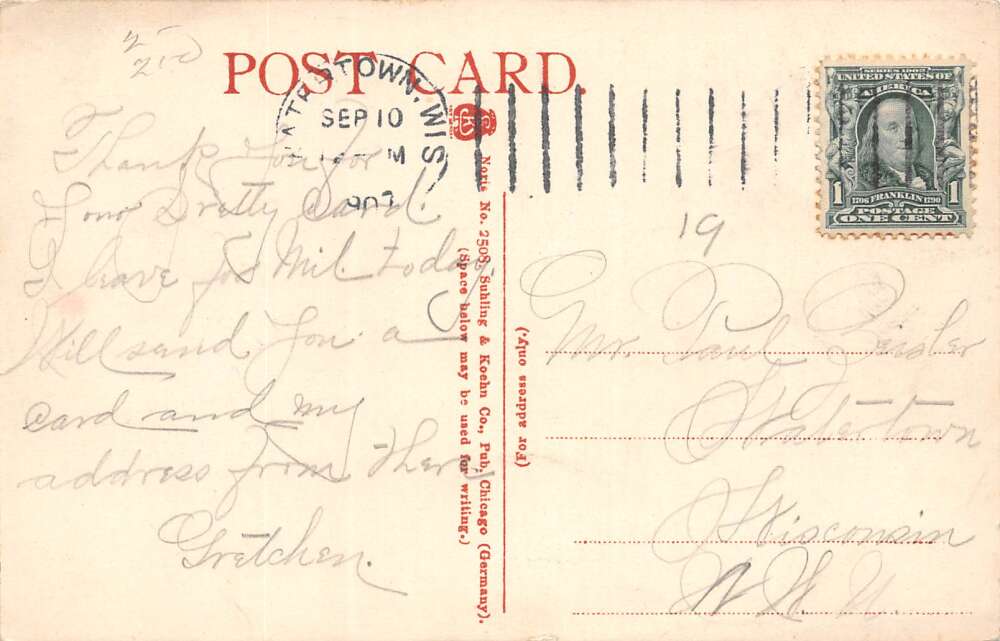 POST CARD.
WATERTOWN, WIS
SEP 10
M
1907
SERIES 1902
UNITED STATES OF
AMERICA
1 1
1706 FRANKLIN 1790
POSTAGE
ONE CENT
19
Thank You for
Your Pretty Card.
I leave for Mil. today.
Will send You a
card and my
address from There
Gretchen.
No. 2508, Suhling & Koehn Co., Pub. Chicago (Germany).
(Space below may be used for writing.)
(For address only.)
Mr. Paul Zeigler
Watertown
Wisconsin